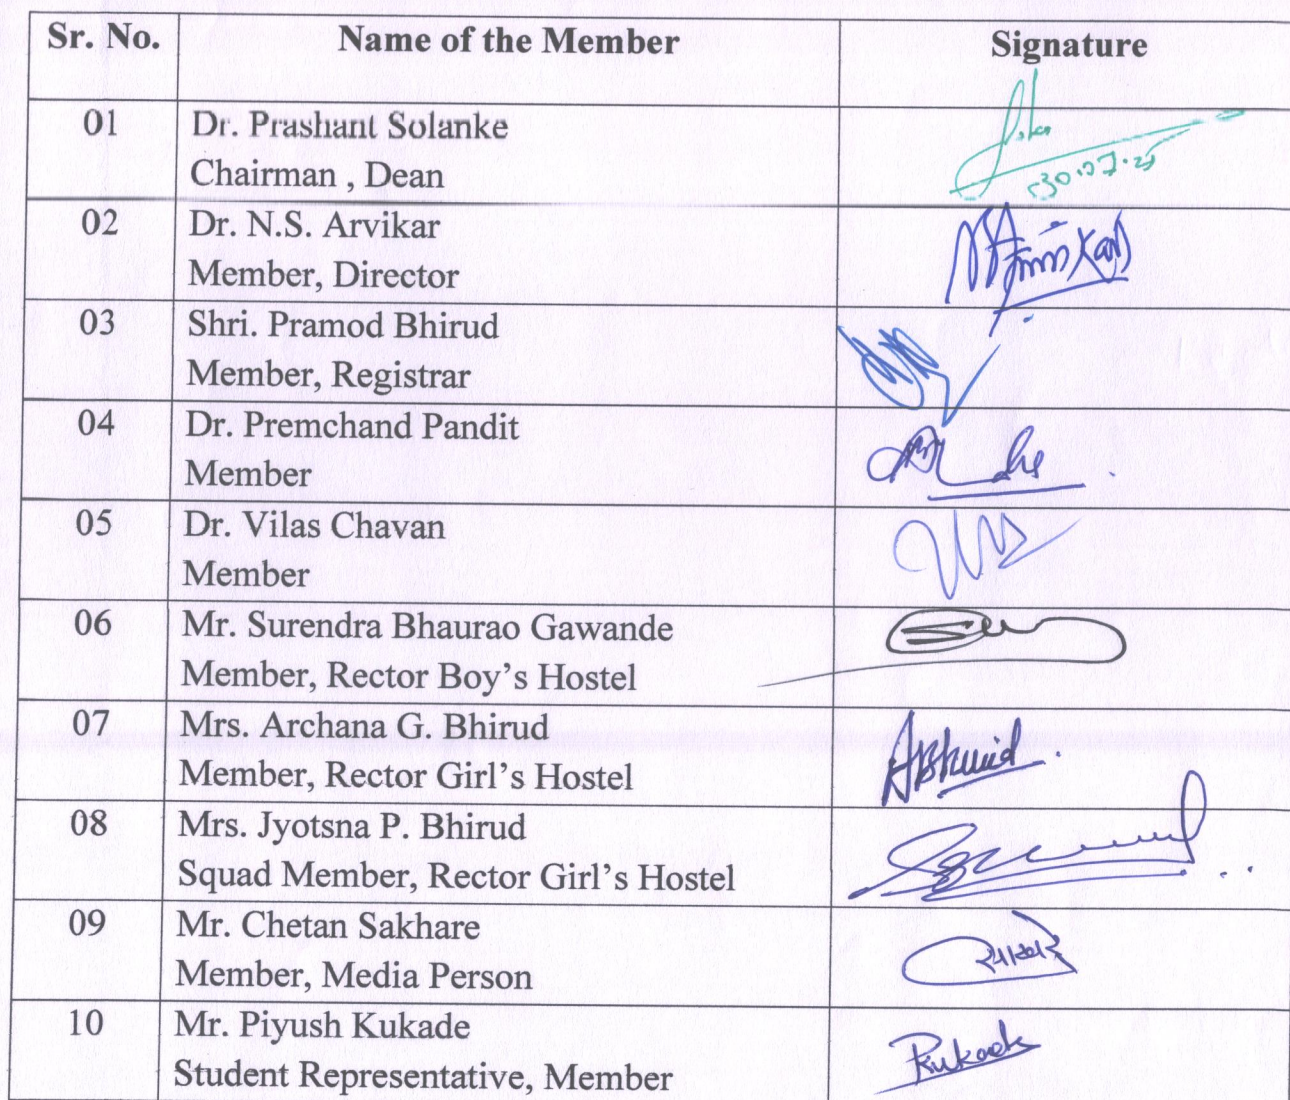 Sr. No. Name of the Member Signature
01 Dr. Prashant Solanke
Chairman , Dean
30.07.25
02 Dr. N.S. Arvikar
Member, Director
03 Shri. Pramod Bhirud
Member, Registrar
04 Dr. Premchand Pandit
Member
05 Dr. Vilas Chavan
Member
06 Mr. Surendra Bhaurao Gawande
Member, Rector Boy's Hostel
07 Mrs. Archana G. Bhirud
Member, Rector Girl's Hostel
ABhirud
08 Mrs. Jyotsna P. Bhirud
Squad Member, Rector Girl's Hostel
09 Mr. Chetan Sakhare
Member, Media Person
साखरे
10 Mr. Piyush Kukade
Student Representative, Member